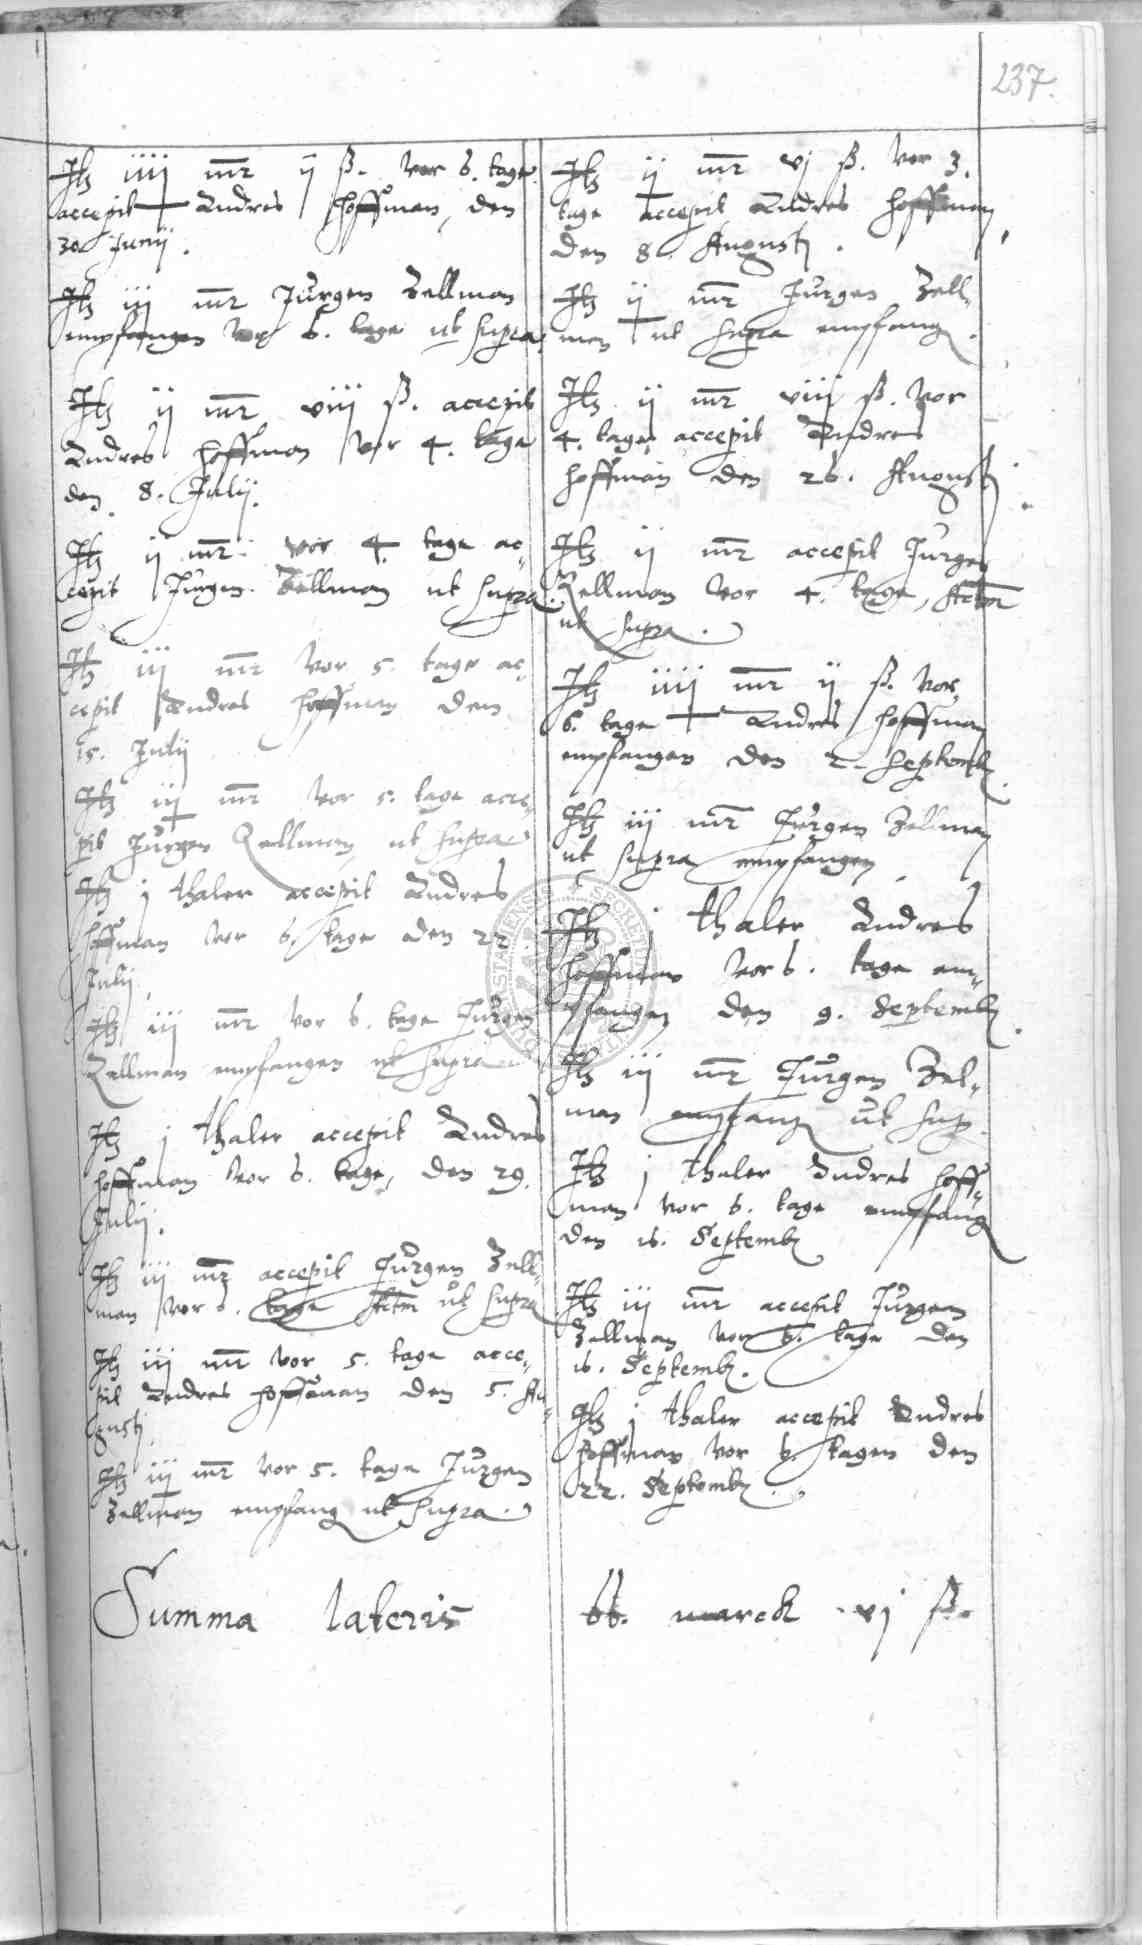 237.
Itz iiij mr ij ß. vor 6. tage
accepit Andres Hoffman, den
30 Junij.
Itz iij mr Jürgen Zellman
empfangen vor 6. tage ut supra.
Itz ij mr viij ß. accepit
Andres Hoffman vor 4. tage
den 8. Julij.
Itz ij mr. vor 4 tage ac-
cepit Jürgen Zellman ut supra.
Itz iij mr vor 5. tage ac-
cepit Andres Hoffman den
15. Julij
Itz iij mr vor 5. tage acce-
pit Jürgen Zellman ut supra
Itz j thaler accepit Andres
Hoffman vor 6. tage den 22
Julij.
Itz iij mr vor 6. tage Jürgen
Zellman empfangen ut supra
Itz j thaler accepit Andres
Hoffman vor 6. tage, den 29.
Julij.
Itz iij mr accepit Jürgen Zell-
man vor 6. tage Actm ut supra
Itz iij mr vor 5. tage acce-
pit Andres Hoffman den 5. Au-
gustj
Itz iij mr vor 5. tage Jürgen
Zellman empfang ut supra.
Itz ij mr vj ß. vor 3.
tage accepit Andres Hoffman,
den 8. Augustj.
Itz ij mr Jürgen Zell-
man ut supra empfang.
Itz ij mr viij ß. vor
4. tage accepit Andres
Hoffman den 26. Augustj.
Itz ij mr accepit Jürgen
Zellman vor 4. tage, Actm
ut supra.
Itz iiij mr ij ß. vor
6. tage Andres Hoffman
empfangen den 2. Septemb.
Itz iij mr Jürgen Zellman
ut supra empfangen.
Itz j thaler Andres
Hoffman vor 6. tage em-
pfangen den 9. Septemb.
Itz iij mr Jürgen Zel-
man empfang ut sup.
Itz j thaler Andres Hoff-
man vor 6. tage empfang
den 16. Septemb
Itz iij mr accepit Jürgen
Zellman vor 6. tage den
16. Septemb.
Itz j thaler accepit Andres
Hoffman vor 6 tagen den
22. Septemb.
Summa lateris 66. marck vj ß.